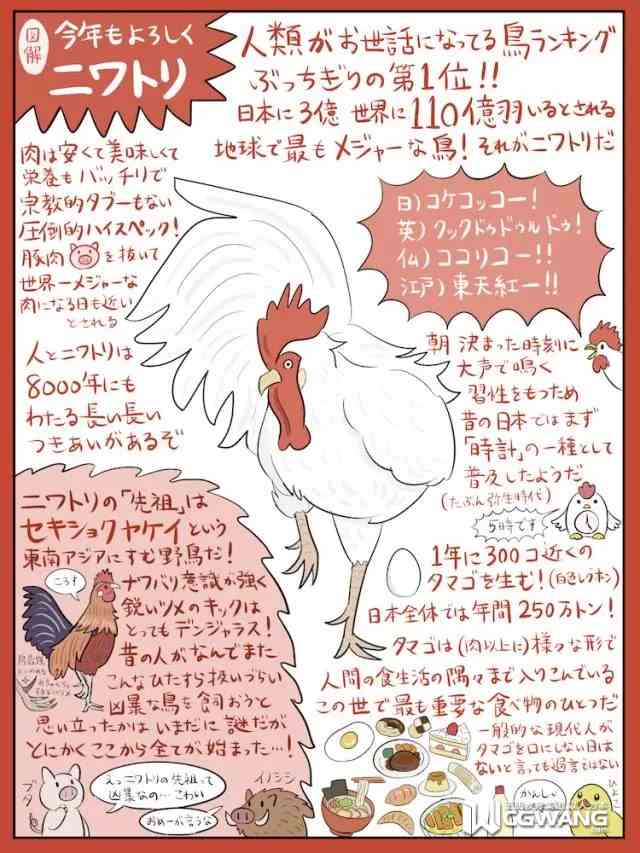 図解
今年もよろしく
ニワトリ
人類がお世話になってる鳥ランキング
ぶっちぎりの第1位!!
日本に3億 世界に110億羽いるとされる
地球で最もメジャーな鳥!それがニワトリだ
肉は安くて美味しくて
栄養もバッチリで
宗教的タブーもない
圧倒的ハイスペック!
豚肉を抜いて
世界一メジャーな
肉になる日も近い
とされる
日)コケコッコー!
英)クックドゥドゥルドゥ!
仏)ココリコー!!
江戸)東天紅ー!!
人とニワトリは
8000年にも
わたる長い長い
つきあいがあるぞ
朝 決まった時刻に
大声で鳴く
習性をもつため
昔の日本ではまず
「時計」の一種として
普及したようだ
(たぶん弥生時代)
5時です
ニワトリの「先祖」は
セキショクヤケイという
東南アジアにすむ野鳥だ!
ころす
ナワバリ意識が強く
鋭いツメのキックは
とってもデンジャラス!
昔の人がなんでまた
こんなひたすら扱いづらい
凶暴な鳥を飼おうと
思い立ったかはいまだに謎だが
とにかくここから全てが始まった…!
1年に300コ近くの
タマゴを生む!(白色レグホン)
日本全体では年間250万トン!
タマゴは(肉以上に)様々な形で
人間の食生活の隅々まで入りこんでいる
この世で最も重要な食べ物のひとつだ
一般的な現代人が
タマゴを口にしない日は
ないと言っても過言ではない
ブタ
えっニワトリの先祖って
凶暴なの…こわい
おめーが言うな
イノシシ
かんしゃ
ひよこ
CGWANG
.com